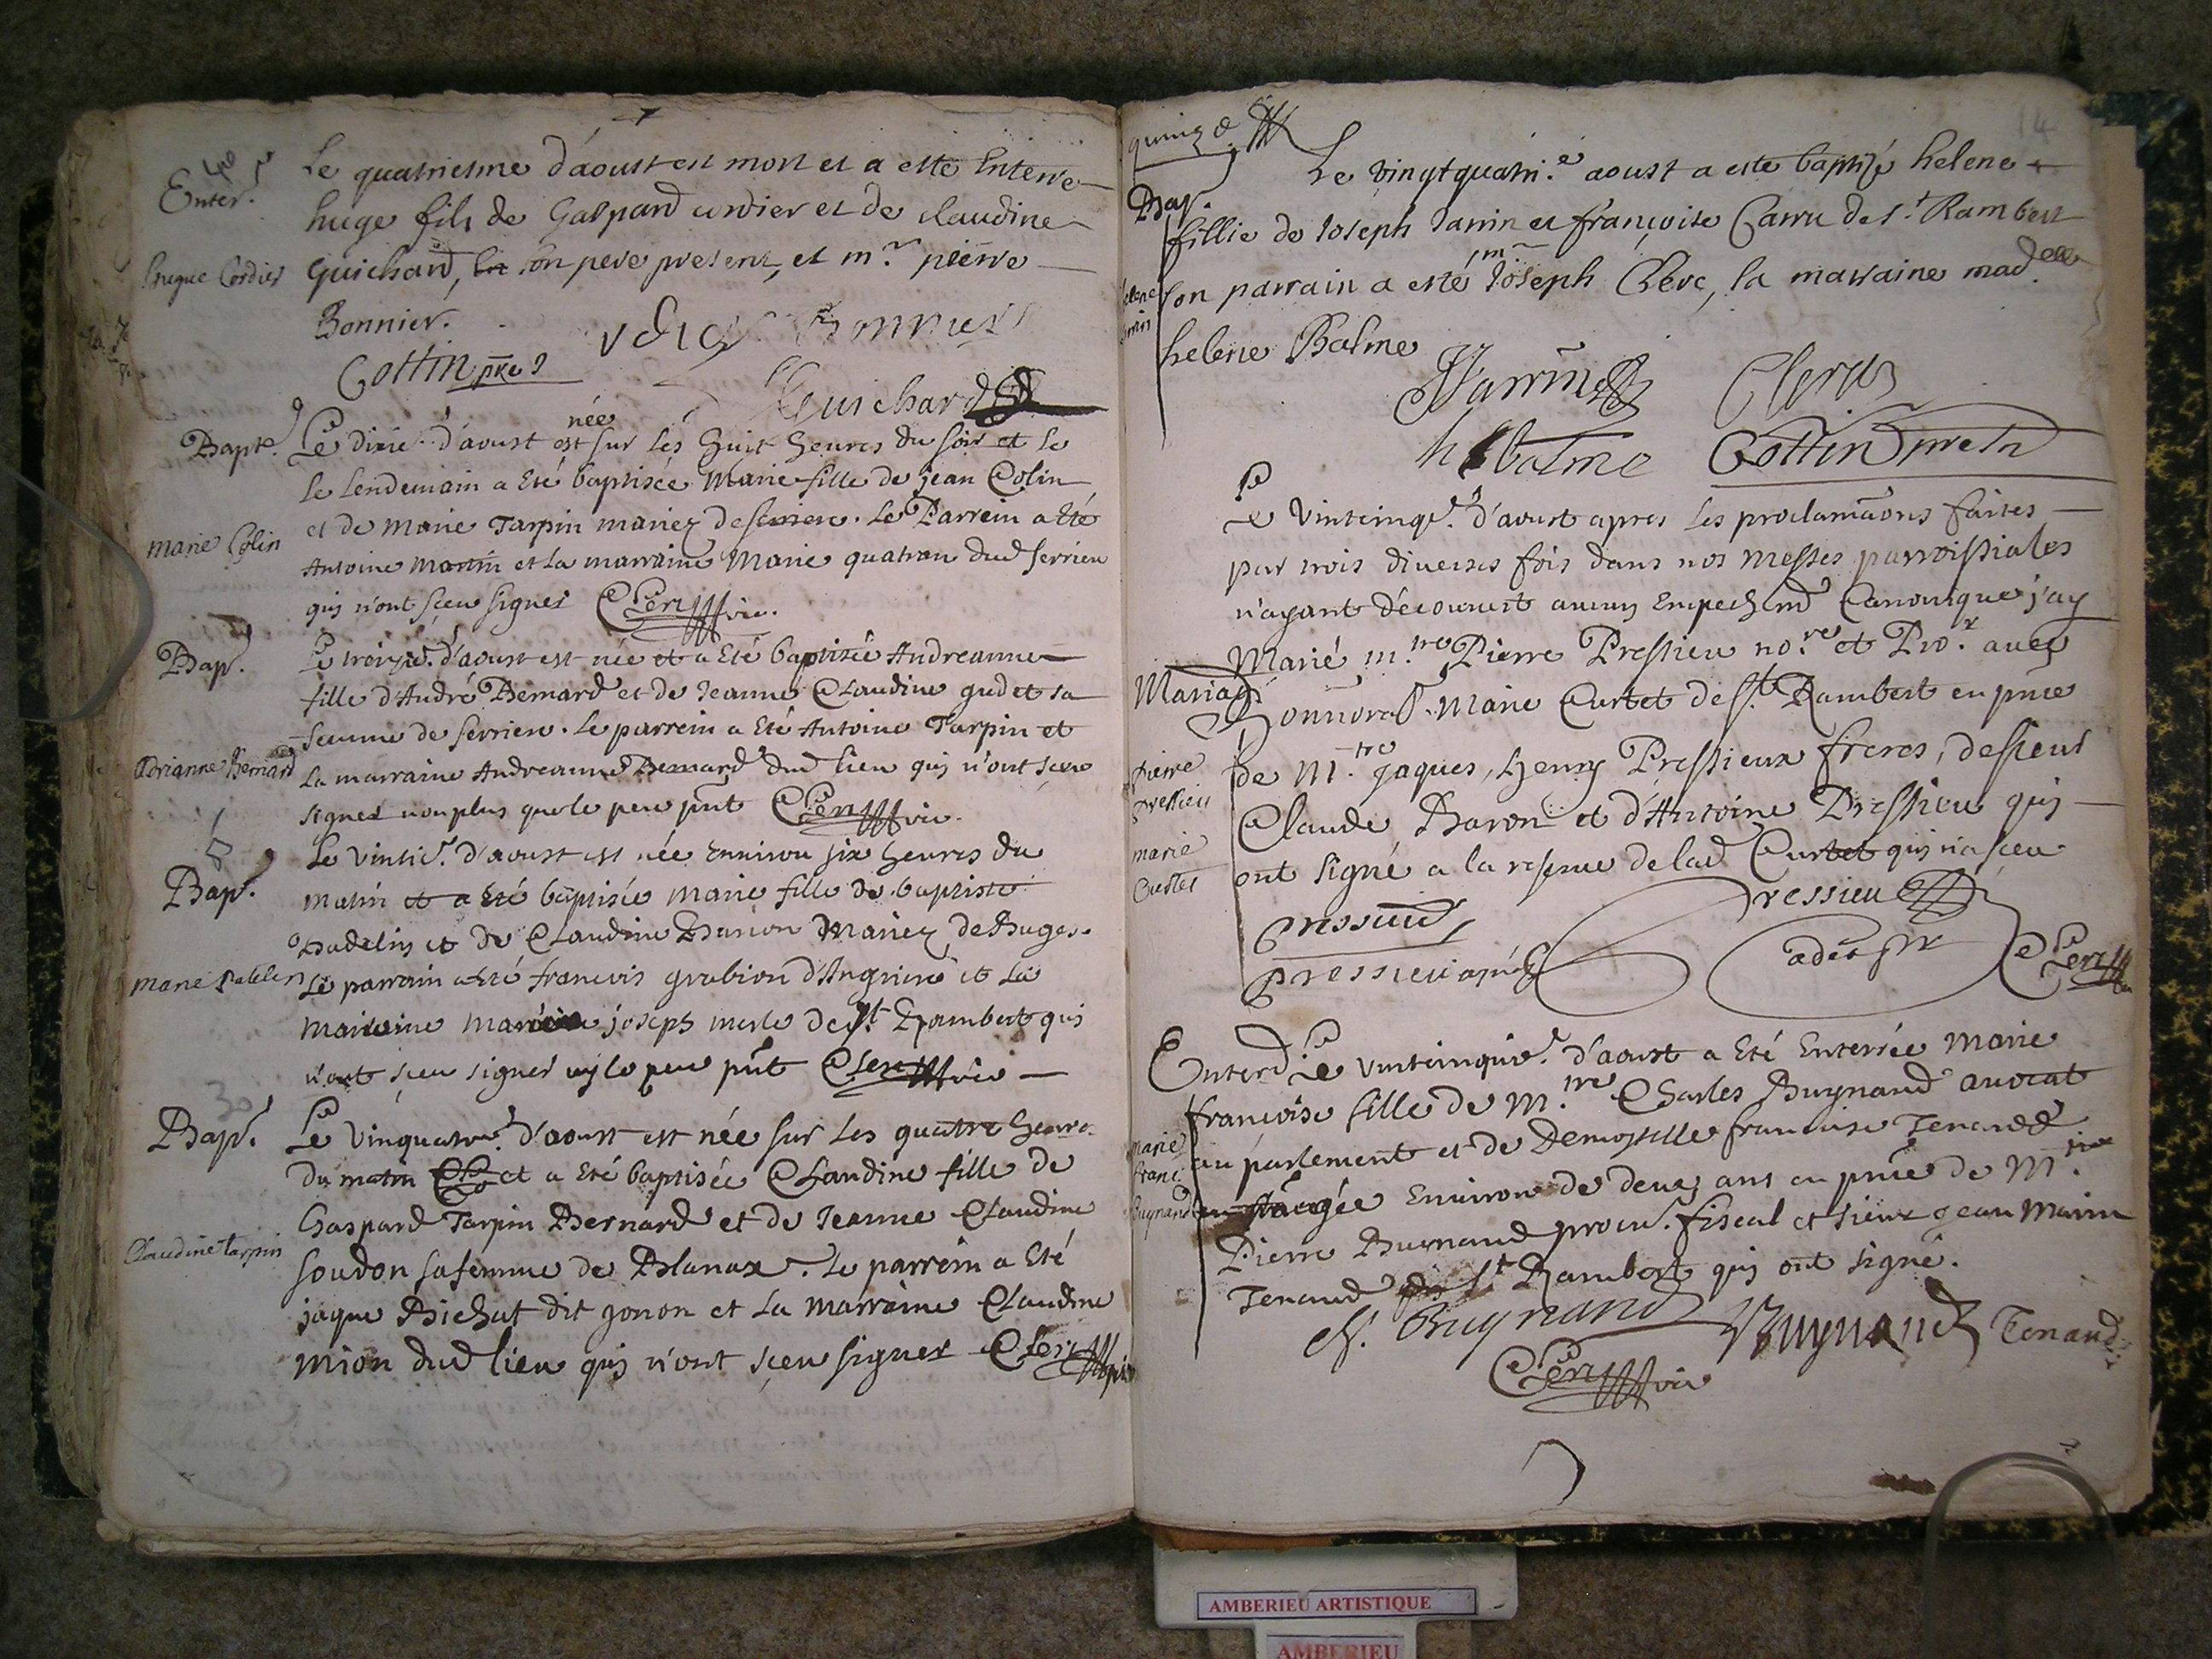 Enter.
Le quatriesme d'aoust est mort et a esté Enterré
huge fils de Gaspard cordier et de claudine
hugue Cordier
Guichard, son pere present, et m.r pierre
Bonnier.
Bonnier
Cottin pre
Guichard
Bapt.
née
Le dixie. d'aoust est sur les huit heures du soir et le
le lendemain a Eté baptisée Marie fille de jean Colin
et de Marie Tarpin mariez de serriere. Le Parrein a Eté
marie Colin
Antoine Martin et la marraine Marie quatran dud serriere
qui n'ont sçeu signer Clerc vic.
Bap.
Le treizie. d'aoust est née et a Eté baptisée Andreanne
fille d'André Bernard et de Jeanne Claudine gudet sa
femme de serriere. Le parrein a Eté Antoine Tarpin et
Adrianne Bernard
La marraine Andreanne Bernard dud lieu qui n'ont sceu
signer non plus que le pere pnt Clerc vic.
Bap.
Le vintie. d'aoust est née Environ six heures du
matin et a Eté baptisée Marie fille de baptiste
et de Claudine mariez de
Marie
Le parrain a Eté francois grabion d'Angriere et la
Marraine joseph merle de St. Rambert qui
n'ont sçeu signer ny le pere pnt Clerc vic
30
Bap.
Le vinquatrie. d'aoust est née sur les quatre heures
du matin et a Eté baptisée Claudine fille de
Gaspard Tarpin Bernard et de Jeanne Claudine
Claudine tarpin
soudon sa femme de Blanax. Le parrein a Eté
jaque Bichat dit jonon et la Marraine Claudine
mion dud lieu qui n'ont sçeu signer Clerc
quinze
14
Le vingtquatri.e aoust a este baptisé helene
Bap.
fillie de Joseph Janin et françoise Carru de s.t Rambert
m.r
son parrain a esté Joseph Clerc, la marraine mad.elle
helene Balme
Janin Clerc
h balme Cottin
Le Vintcinqe. d'aoust apres les proclamaons faites
par trois diverses fois dans nos Messes parroissiales
n'ayant découvert aucun Empechemt Canonique j'ay
Marié m.tre Pierre Pressieu no.re et Pro.r avec
Mariag
honnora. Marie Curtet de St. Rambert en pnce
pierre
pressieu
de M.tre jaques, henry Pressieux freres, de sieur
Claude Baron et d'Antoine Pressieu qui
marie
Curtet
ont signé a la reserve de lad Curtet qui n'a sceu
Pressieu
Pressieu
Pressieu
Clerc
Enter
Le vintcinquie. d'aoust a Eté Enterrée Marie
françoise fille de M.tre Charles Bugnand avocat
au parlement et de Demoyselle francoise Tenand
Marie
franc.
Bugnand
agée Environ de deux ans en pnce de M.tre
Pierre Bugnand procur. fiscal et sieur jean Marin
Tenand St Rambert qui ont signé.
Bugnand Bugnand Tenand
Clerc vic
AMBERIEU ARTISTIQUE
AMBERIEU